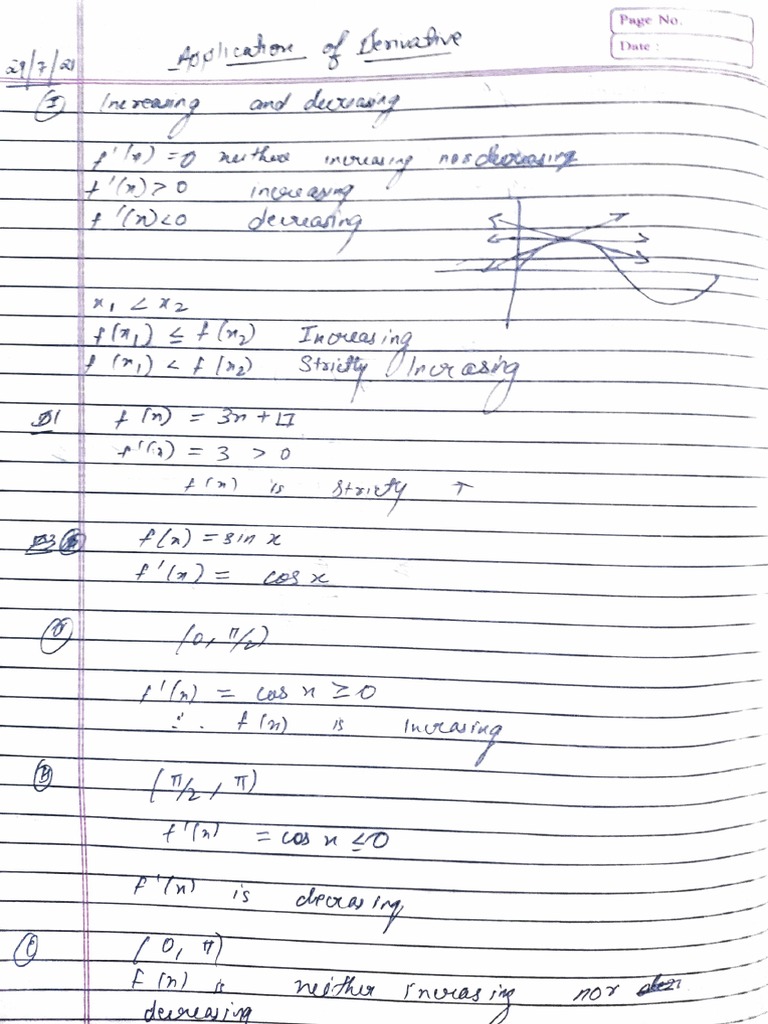 Page No.
Date :
29/7/21
Application of Derivative
(I) Increasing and decreasing
f'(x) = 0 neither increasing nor decreasing
f'(x) > 0 increasing
f'(x) < 0 decreasing
x₁ < x₂
f(x₁) ≤ f(x₂) Increasing
f(x₁) < f(x₂) Strictly Increasing
f(x) = 3x + 17
f'(x) = 3 > 0
f(x) is strictly ↑
f(x) = sin x
f'(x) = cos x
(0, π/2)
f'(x) = cos x ≥ 0
∴ f(x) is Incrasing
(B) (π/2, π)
f'(x) = cos x ≤ 0
f'(x) is decrasing
(C) (0, π)
f(x) is neither increasing nor
decreasing